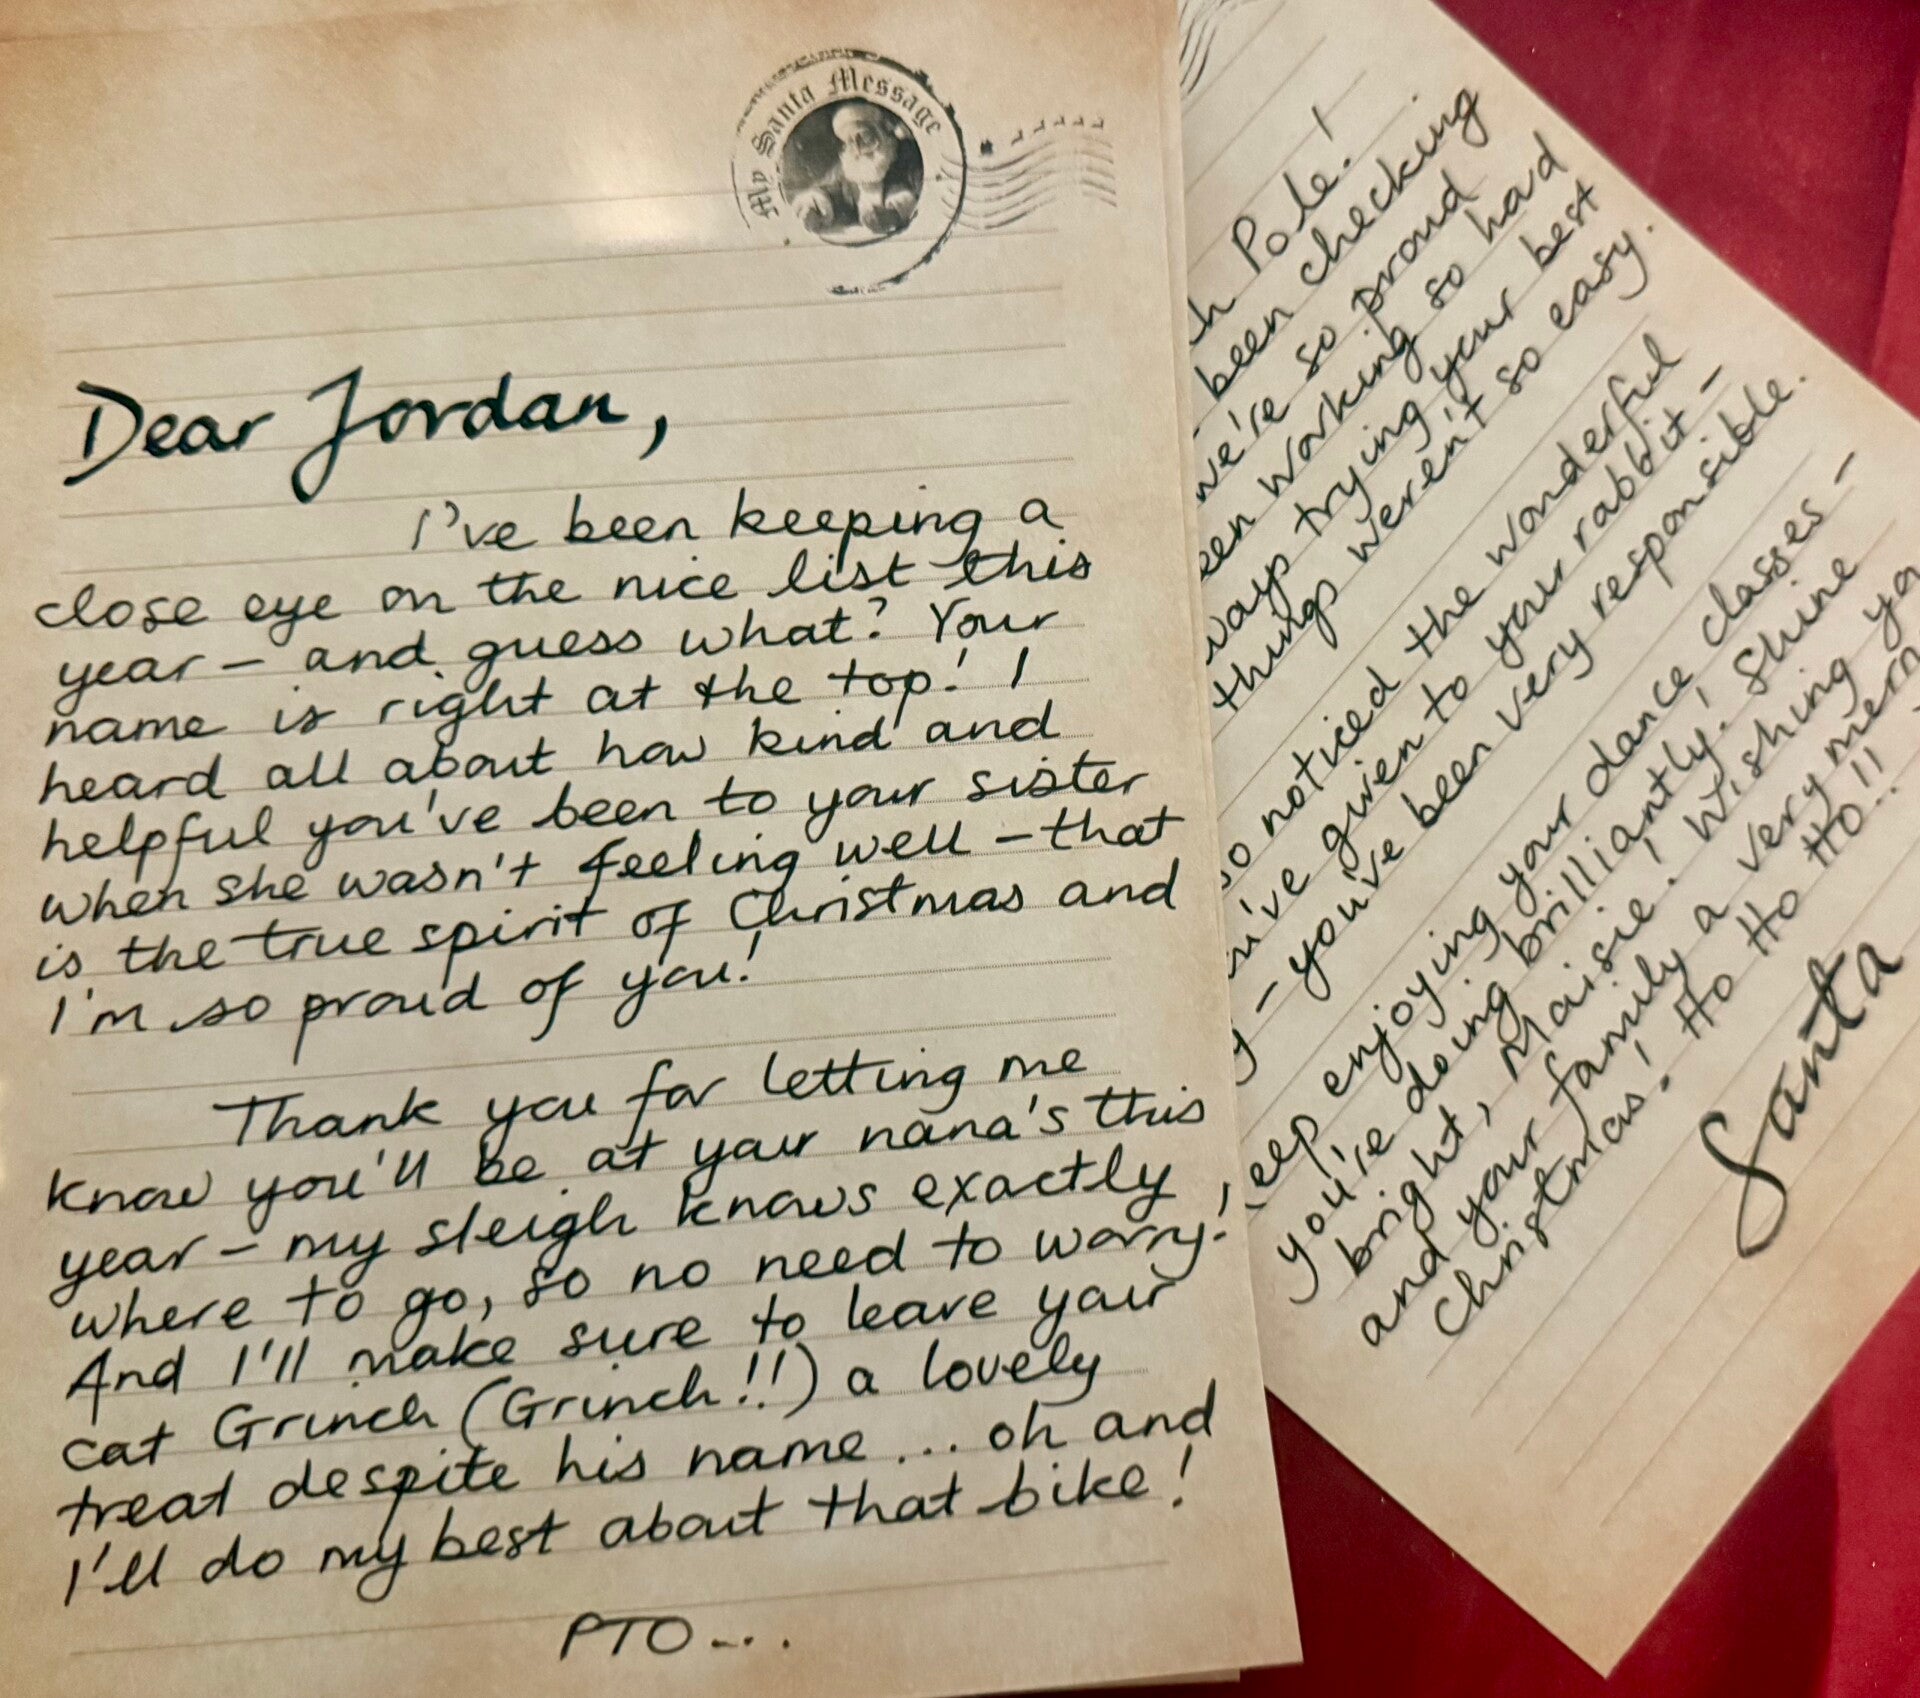 My Santa Message
Dear Jordan,
I've been keeping a
close eye on the nice list this
year – and guess what? Your
name is right at the top! I
heard all about how kind and
helpful you've been to your sister
when she wasn't feeling well – that
is the true spirit of Christmas and
I'm so proud of you!
Thank you for letting me
know you'll be at your nana's this
year – my sleigh knows exactly
where to go, so no need to worry!
And I'll make sure to leave your
cat Grinch (Grinch!!) a lovely
treat despite his name... oh and
I'll do my best about that bike!
PTO...
Pole!
been checking
we're so proud
working so hard
trying your best
things weren't so easy.
noticed the wonderful
given to your rabbit –
– you've been very responsible.
enjoying your dance classes –
you're doing brilliantly. Shine
bright, Maisie! Wishing
and your family a very
Christmas! Ho Ho Ho Ho..!!
Santa